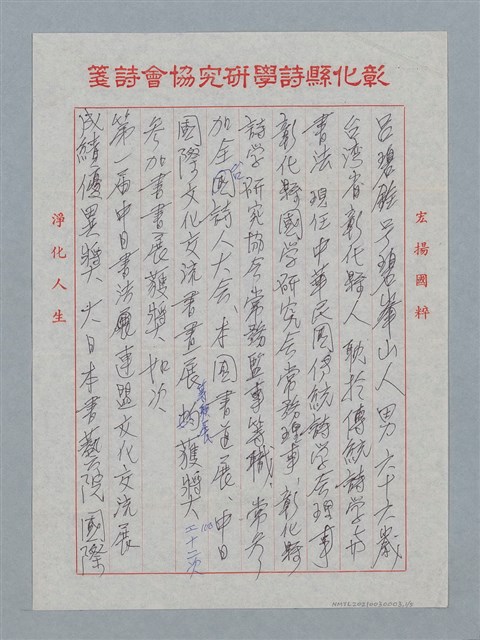 彰化縣詩學研究協會詩箋
宏揚國粹
呂碧銓號碧峯山人男六十六歲
台湾省彰化縣人耽於傳統詩学與
書法現任中華民国傳統詩学会理事
彰化縣國学研究会常務理事、彰化縣
詩学研究協会常務監事等職、常參
加全国詩人大会、本国書道展、中日
國際文化交流書畫展等聯展均獲獎大二十二次
參加書畫展獲獎如次
第一届中日書法展連盟文化交流展
成績優異獎、大日本書藝院國際
淨化人生
NMTL20210030003 1/8